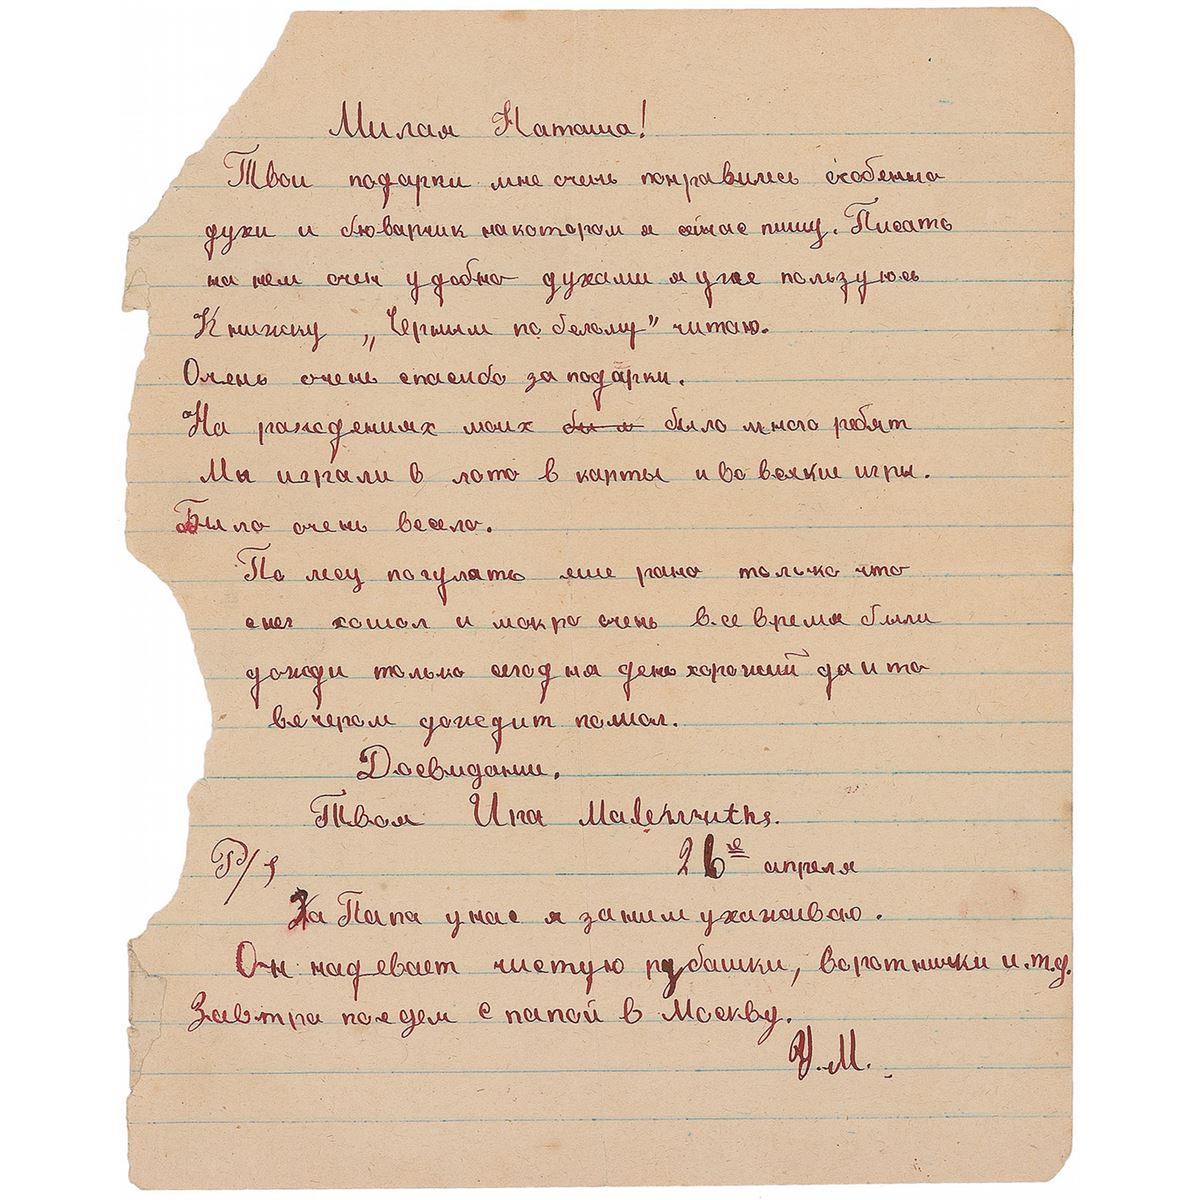 Милая Наташа!
Твои подарки мне очень понравились особенно
духи и бюварчик на котором я сейчас пишу. Писать
на нем очен удобно духами я уже пользуюсь
Книжку „Черным по белому” читаю.
Очень очень спасибо за подарки.
На раждениях моих было много ребят
Мы играли в лото в карты и во всякие игры.
Было очень весело.
По лесу погулять еще рано только что
снег сошол и мокро очень все время были
дожди только сегодня день хороший да и то
вечером дождит пошол.
Досвидании.
Твоя Ина
P/S
26ге апреля
За Папа у нас я за ним ухаживаю.
Он надевает чистую рубашки, воротнички и.т.д.
Завтра поедем с папой в Москву.
И.М.